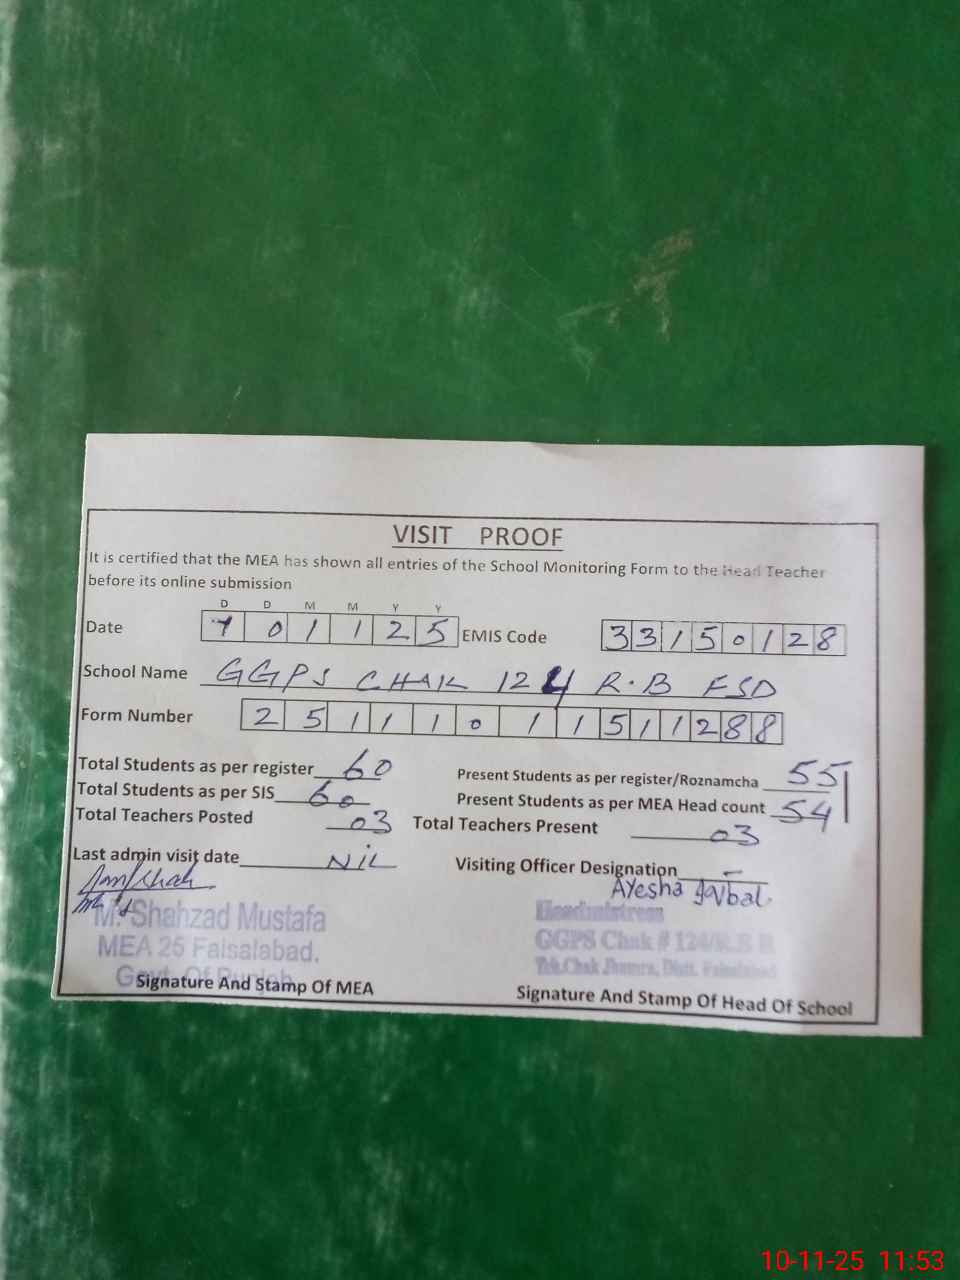 VISIT PROOF
It is certified that the MEA has shown all entries of the School Monitoring Form to the Head Teacher
before its online submission
D D M M Y Y
Date 1 0 1 1 2 5 EMIS Code 3 3 1 5 0 1 2 8
School Name GGPS CHAK 124 R.B FSD
Form Number 2 5 1 1 1 0 1 1 5 1 1 2 8 8
Total Students as per register 60 Present Students as per register/Roznamcha 55
Total Students as per SIS 60 Present Students as per MEA Head count 54
Total Teachers Posted 03 Total Teachers Present 03
Last admin visit date NiL Visiting Officer Designation -
Ayesha Iqbal
M. Shahzad Mustafa Headmistress
MEA 25 Faisalabad. GGPS Chak # 124/R.B
Govt. Of Punjab Teh.Chak Jhumra, Distt. Faisalabad
Signature And Stamp Of MEA Signature And Stamp Of Head Of School
10-11-25 11:53